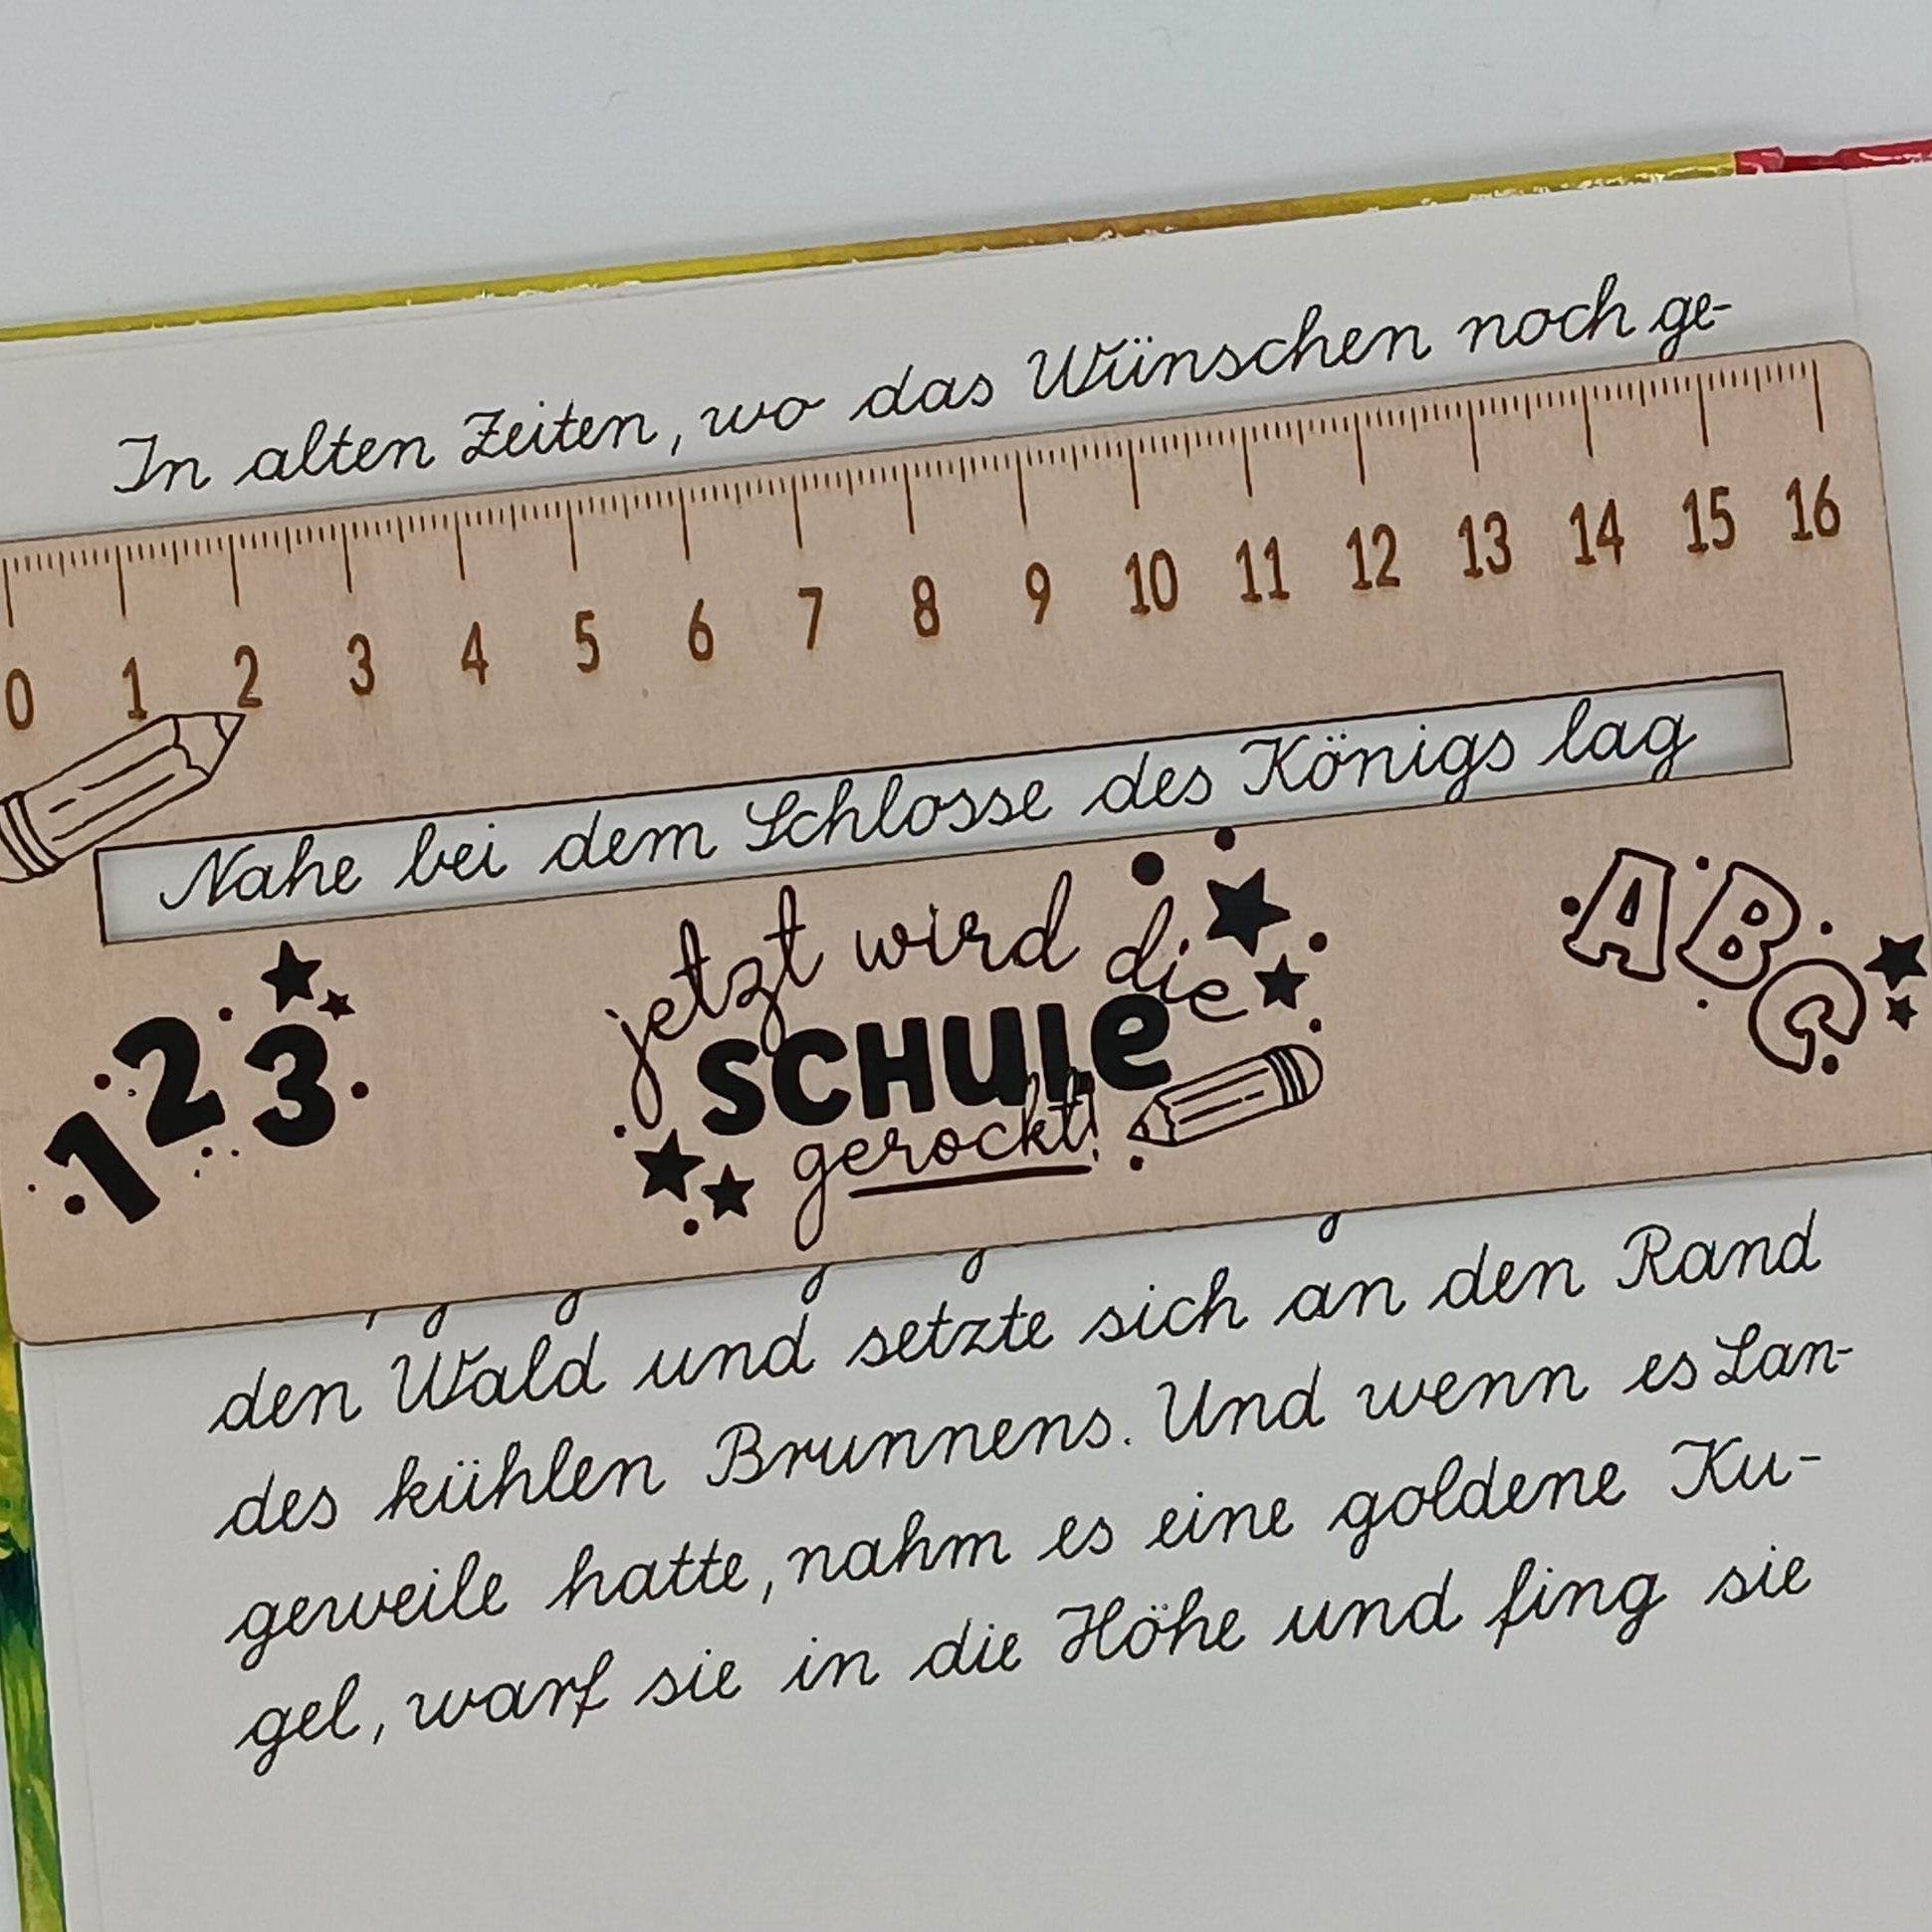 In alten Zeiten, wo das Wünschen noch ge-
0 1 2 3 4 5 6 7 8 9 10 11 12 13 14 15 16
Nahe bei dem Schlosse des Königs lag
jetzt wird die
SCHUlE
gerockt!
1 2 3
A B C
den Wald und setzte sich an den Rand
des kühlen Brunnens. Und wenn es Lan-
geweile hatte, nahm es eine goldene Ku-
gel, warf sie in die Höhe und fing sie